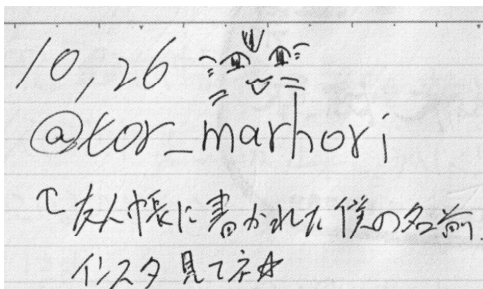 10,26
@tor_marhori
↑友人帳に書かれた僕の名前
インスタ見てネ☆